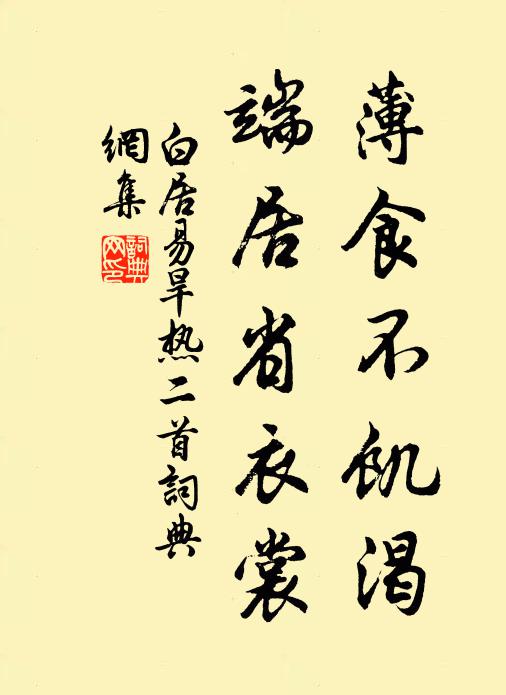 薄食不飢渴
端居省衣裳
白居易旱热二首詞典
網集
詞典網印